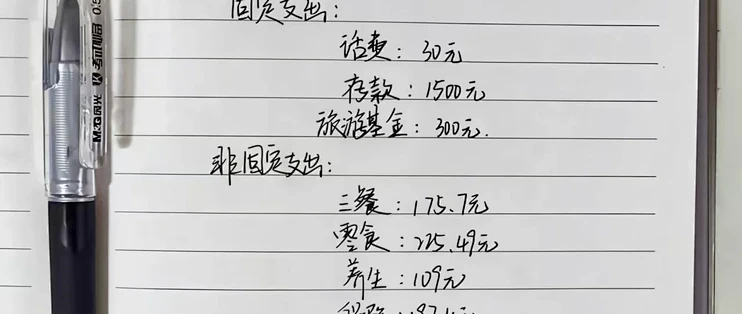 固定支出：
话费：30元
存款：1500元
旅游基金：300元.
非固定支出：
三餐：175.7元
零食：225.49元
养生：109元
M&G 晨光 K 考试必备 0.5